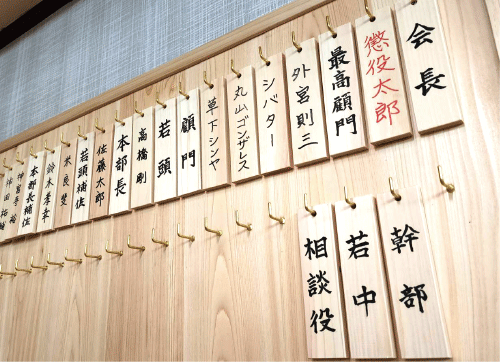 会長
懲役太郎
最高顧門
外宮則三
シバター
丸山ゴンザレス
草下シンヤ
顧門
若頭
高橋剛
本部長
佐藤太郎
若頭補佐
鈴木孝幸
本部長補佐
幹部
若中
相談役